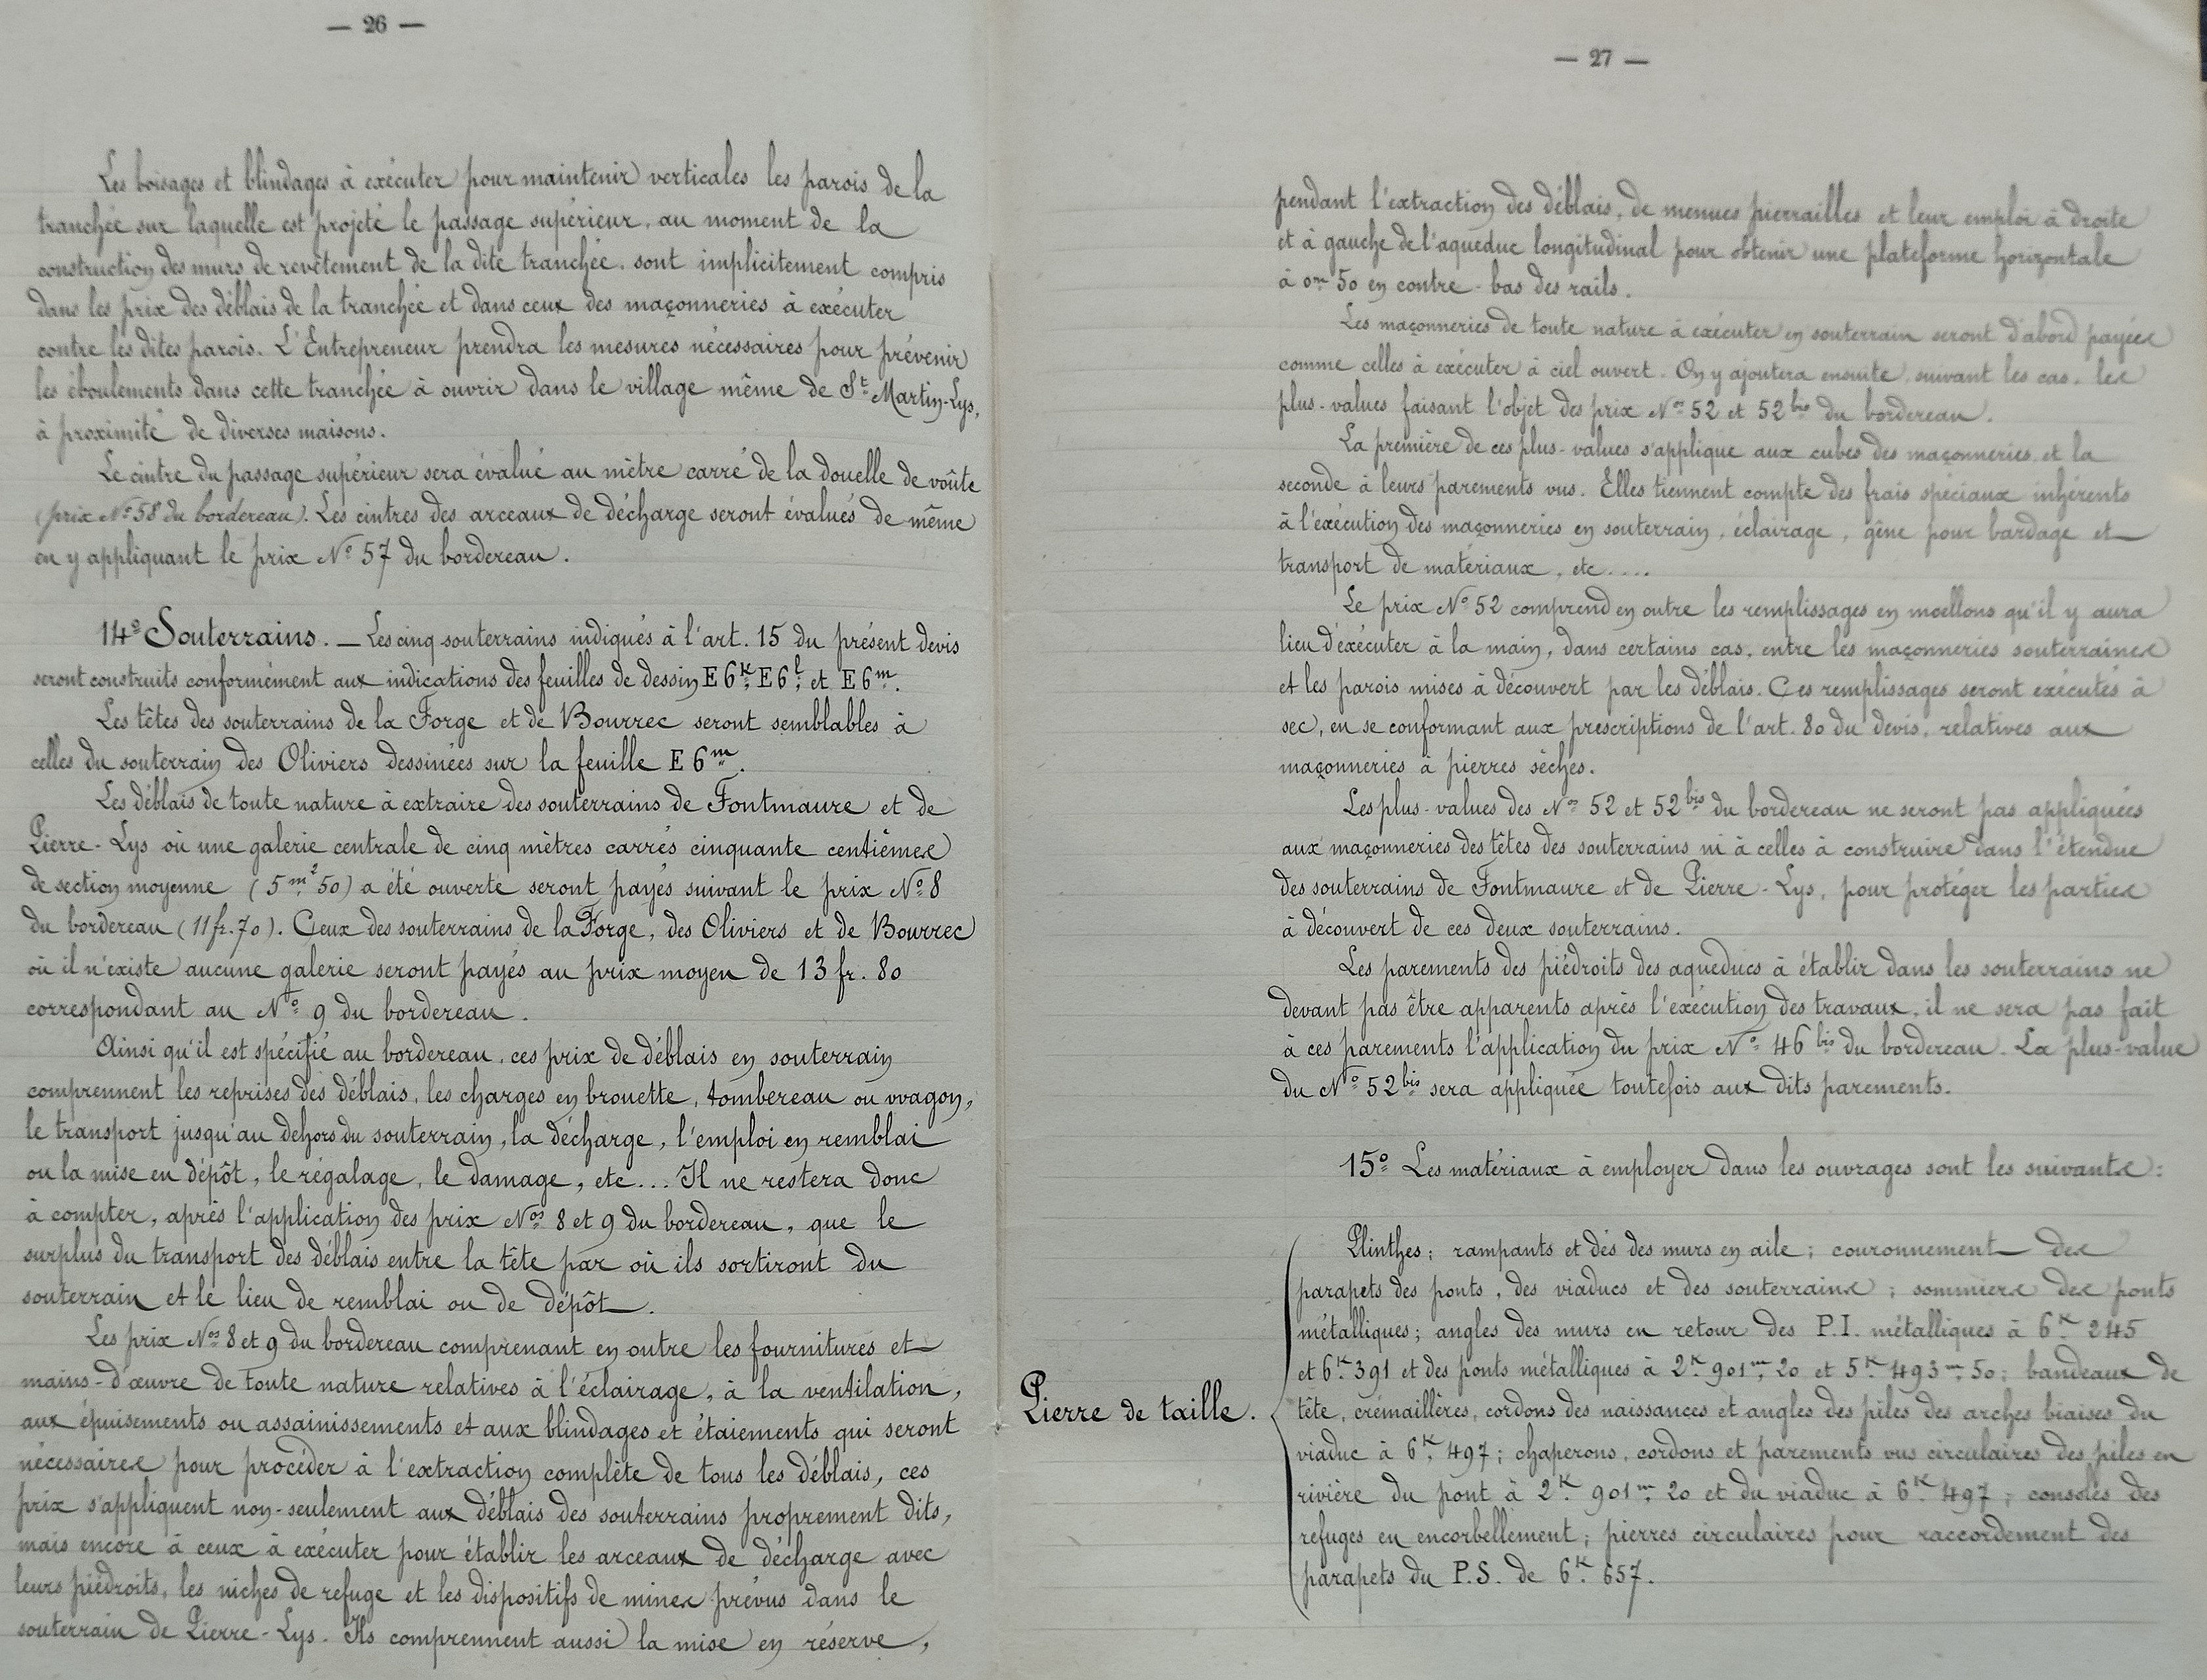 — 26 —
Les boisages et blindages à exécuter pour maintenir verticales les parois de la
tranchée sur laquelle est projeté le passage supérieur, au moment de la
construction des murs de revêtement de la dite tranchée, sont implicitement compris
dans les prix des déblais de la tranchée et dans ceux des maçonneries à exécuter
contre les dites parois. L'Entrepreneur prendra les mesures nécessaires pour prévenir
les éboulements dans cette tranchée à ouvrir dans le village même de St Martin-Lys,
à proximité de diverses maisons.
Le cintre du passage supérieur sera évalué au mètre carré de la douelle de voûte
(prix No 58 du bordereau). Les cintres des arceaux de décharge seront évalués de même
en y appliquant le prix No 57 du bordereau.
14o Souterrains. — Les cinq souterrains indiqués à l'art. 15 du présent devis
seront construits conformément aux indications des feuilles de dessin E6K, E6l, et E6m.
Les têtes des souterrains de la Forge et de Bourrec seront semblables à
celles du souterrain des Oliviers dessinées sur la feuille E6m.
Les déblais de toute nature à extraire des souterrains de Fontmaure et de
Pierre-Lys où une galerie centrale de cinq mètres carrés cinquante centièmes
de section moyenne (5m²50) a été ouverte seront payés suivant le prix No 8
du bordereau (11fr.70). Ceux des souterrains de la Forge, des Oliviers et de Bourrec
où il n'existe aucune galerie seront payés au prix moyen de 13 fr. 80
correspondant au No 9 du bordereau.
Ainsi qu'il est spécifié au bordereau, ces prix de déblais en souterrain
comprennent les reprises des déblais, les charges en brouette, tombereau ou wagon,
le transport jusqu'au dehors du souterrain, la décharge, l'emploi en remblai
ou la mise en dépôt, le régalage, le damage, etc... Il ne restera donc
à compter, après l'application des prix Nos 8 et 9 du bordereau, que le
surplus du transport des déblais entre la tête par où ils sortiront du
souterrain et le lieu de remblai ou de dépôt.
Les prix Nos 8 et 9 du bordereau comprenant en outre les fournitures et
mains-d'œuvre de toute nature relatives à l'éclairage, à la ventilation,
aux épuisements ou assainissements et aux blindages et étaiements qui seront
nécessaires pour procéder à l'extraction complète de tous les déblais, ces
prix s'appliquent non-seulement aux déblais des souterrains proprement dits,
mais encore à ceux à exécuter pour établir les arceaux de décharge avec
leurs piédroits, les niches de refuge et les dispositifs de mines prévus dans le
souterrain de Pierre-Lys. Ils comprennent aussi la mise en réserve,
— 27 —
pendant l'extraction des déblais, de menues pierrailles et leur emploi à droite
et à gauche de l'aqueduc longitudinal pour obtenir une plateforme horizontale
à 0m50 en contre-bas des rails.
Les maçonneries de toute nature à exécuter en souterrain seront d'abord payées
comme celles à exécuter à ciel ouvert. On y ajoutera ensuite, suivant les cas, les
plus-values faisant l'objet des prix Nos 52 et 52bis du bordereau.
La première de ces plus-values s'applique aux cubes des maçonneries et la
seconde à leurs parements vus. Elles tiennent compte des frais spéciaux inhérents
à l'exécution des maçonneries en souterrain, éclairage, gêne pour bardage et
transport de matériaux, etc....
Le prix No 52 comprend en outre les remplissages en moellons qu'il y aura
lieu d'exécuter à la main, dans certains cas, entre les maçonneries souterraines
et les parois mises à découvert par les déblais. Ces remplissages seront exécutés à
sec, en se conformant aux prescriptions de l'art. 80 du devis, relatives aux
maçonneries à pierres sèches.
Les plus-values des Nos 52 et 52bis du bordereau ne seront pas appliquées
aux maçonneries des têtes des souterrains ni à celles à construire dans l'étendue
des souterrains de Fontmaure et de Pierre-Lys, pour protéger les parties
à découvert de ces deux souterrains.
Les parements des piédroits des aqueducs à établir dans les souterrains ne
devant pas être apparents après l'exécution des travaux, il ne sera pas fait
à ces parements l'application du prix No 46bis du bordereau. La plus-value
du No 52bis sera appliquée toutefois aux dits parements.
15o Les matériaux à employer dans les ouvrages sont les suivants:
Pierre de taille.
Plinthes; rampants et dés des murs en aile; couronnement des
parapets des ponts, des viaducs et des souterrains; sommiers des ponts
métalliques; angles des murs en retour des P.I. métalliques à 6K 245
et 6K 391 et des ponts métalliques à 2K 901m,20 et 5K 493m,50; bandeaux de
tête, crémaillères, cordons des naissances et angles des piles des arches biaises du
viaduc à 6K 497; chaperons, cordons et parements vus circulaires des piles en
rivière du pont à 2K 901m,20 et du viaduc à 6K 497; consoles des
refuges en encorbellement; pierres circulaires pour raccordement des
parapets du P.S. de 6K 657.